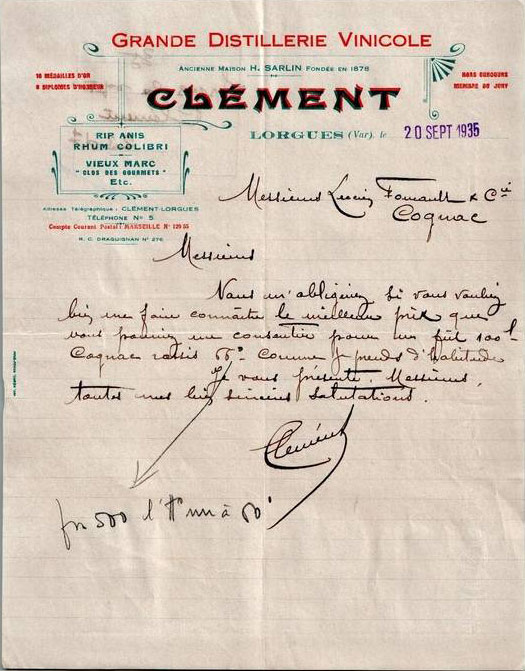 GRANDE DISTILLERIE VINICOLE
ANCIENNE MAISON H. SARLIN FONDÉE EN 1878
10 MÉDAILLES D'OR
8 DIPLOMES D'HONNEUR
HORS CONCOURS
MEMBRE DU JURY
CLÉMENT
LORGUES (Var), le 20 SEPT 1935
RIP ANIS
RHUM COLIBRI
VIEUX MARC
"CLOS DES GOURMETS"
Etc.
Adresse Télégraphique : CLÉMENT-LORGUES
TÉLÉPHONE N° 5
Compte Courant Postal : MARSEILLE N° 129 55
R. C. DRAGUIGNAN N° 276
Messieurs Lucien Foucault & Cie
Cognac
Messieurs
Vous m'obligeriez si vous vouliez
bien me faire connaître le meilleur prix que
vous pourriez me consentir pour un fût 100 l
Cognac rassis 60° comme je prends d'habitude
Je vous présente, Messieurs,
toutes mes bien sincères salutations.
Clément
500 l'H nu à 60°